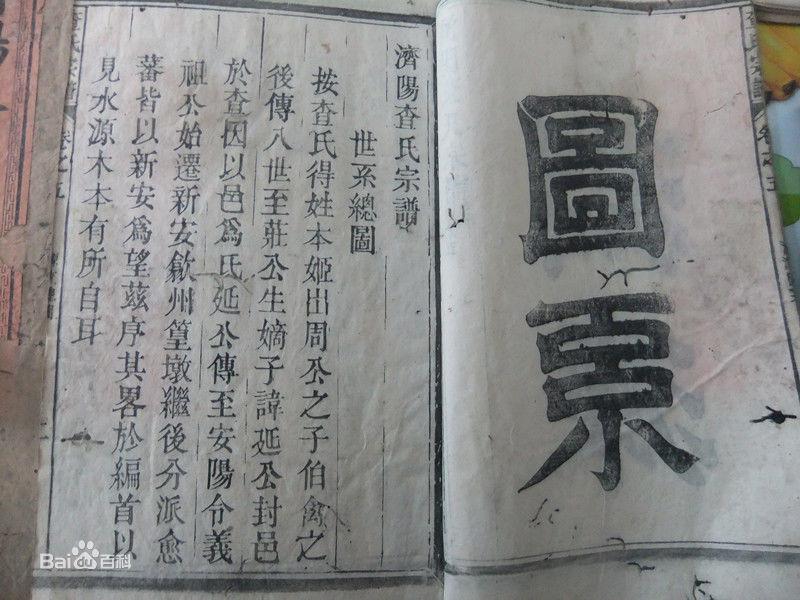 圖系
濟陽查氏宗譜
世系總圖
按查氏得姓本姬出周公之子伯禽之
後傳八世至莊公生嫡子諱延公封邑
於查因以邑爲氏延公傳至安陽令義
祖公始遷新安歙州篁墩繼後分派愈
蕃皆以新安爲望茲序其畧於編首以
見水源木本有所自耳
查氏宗譜 卷之五
Bai百科